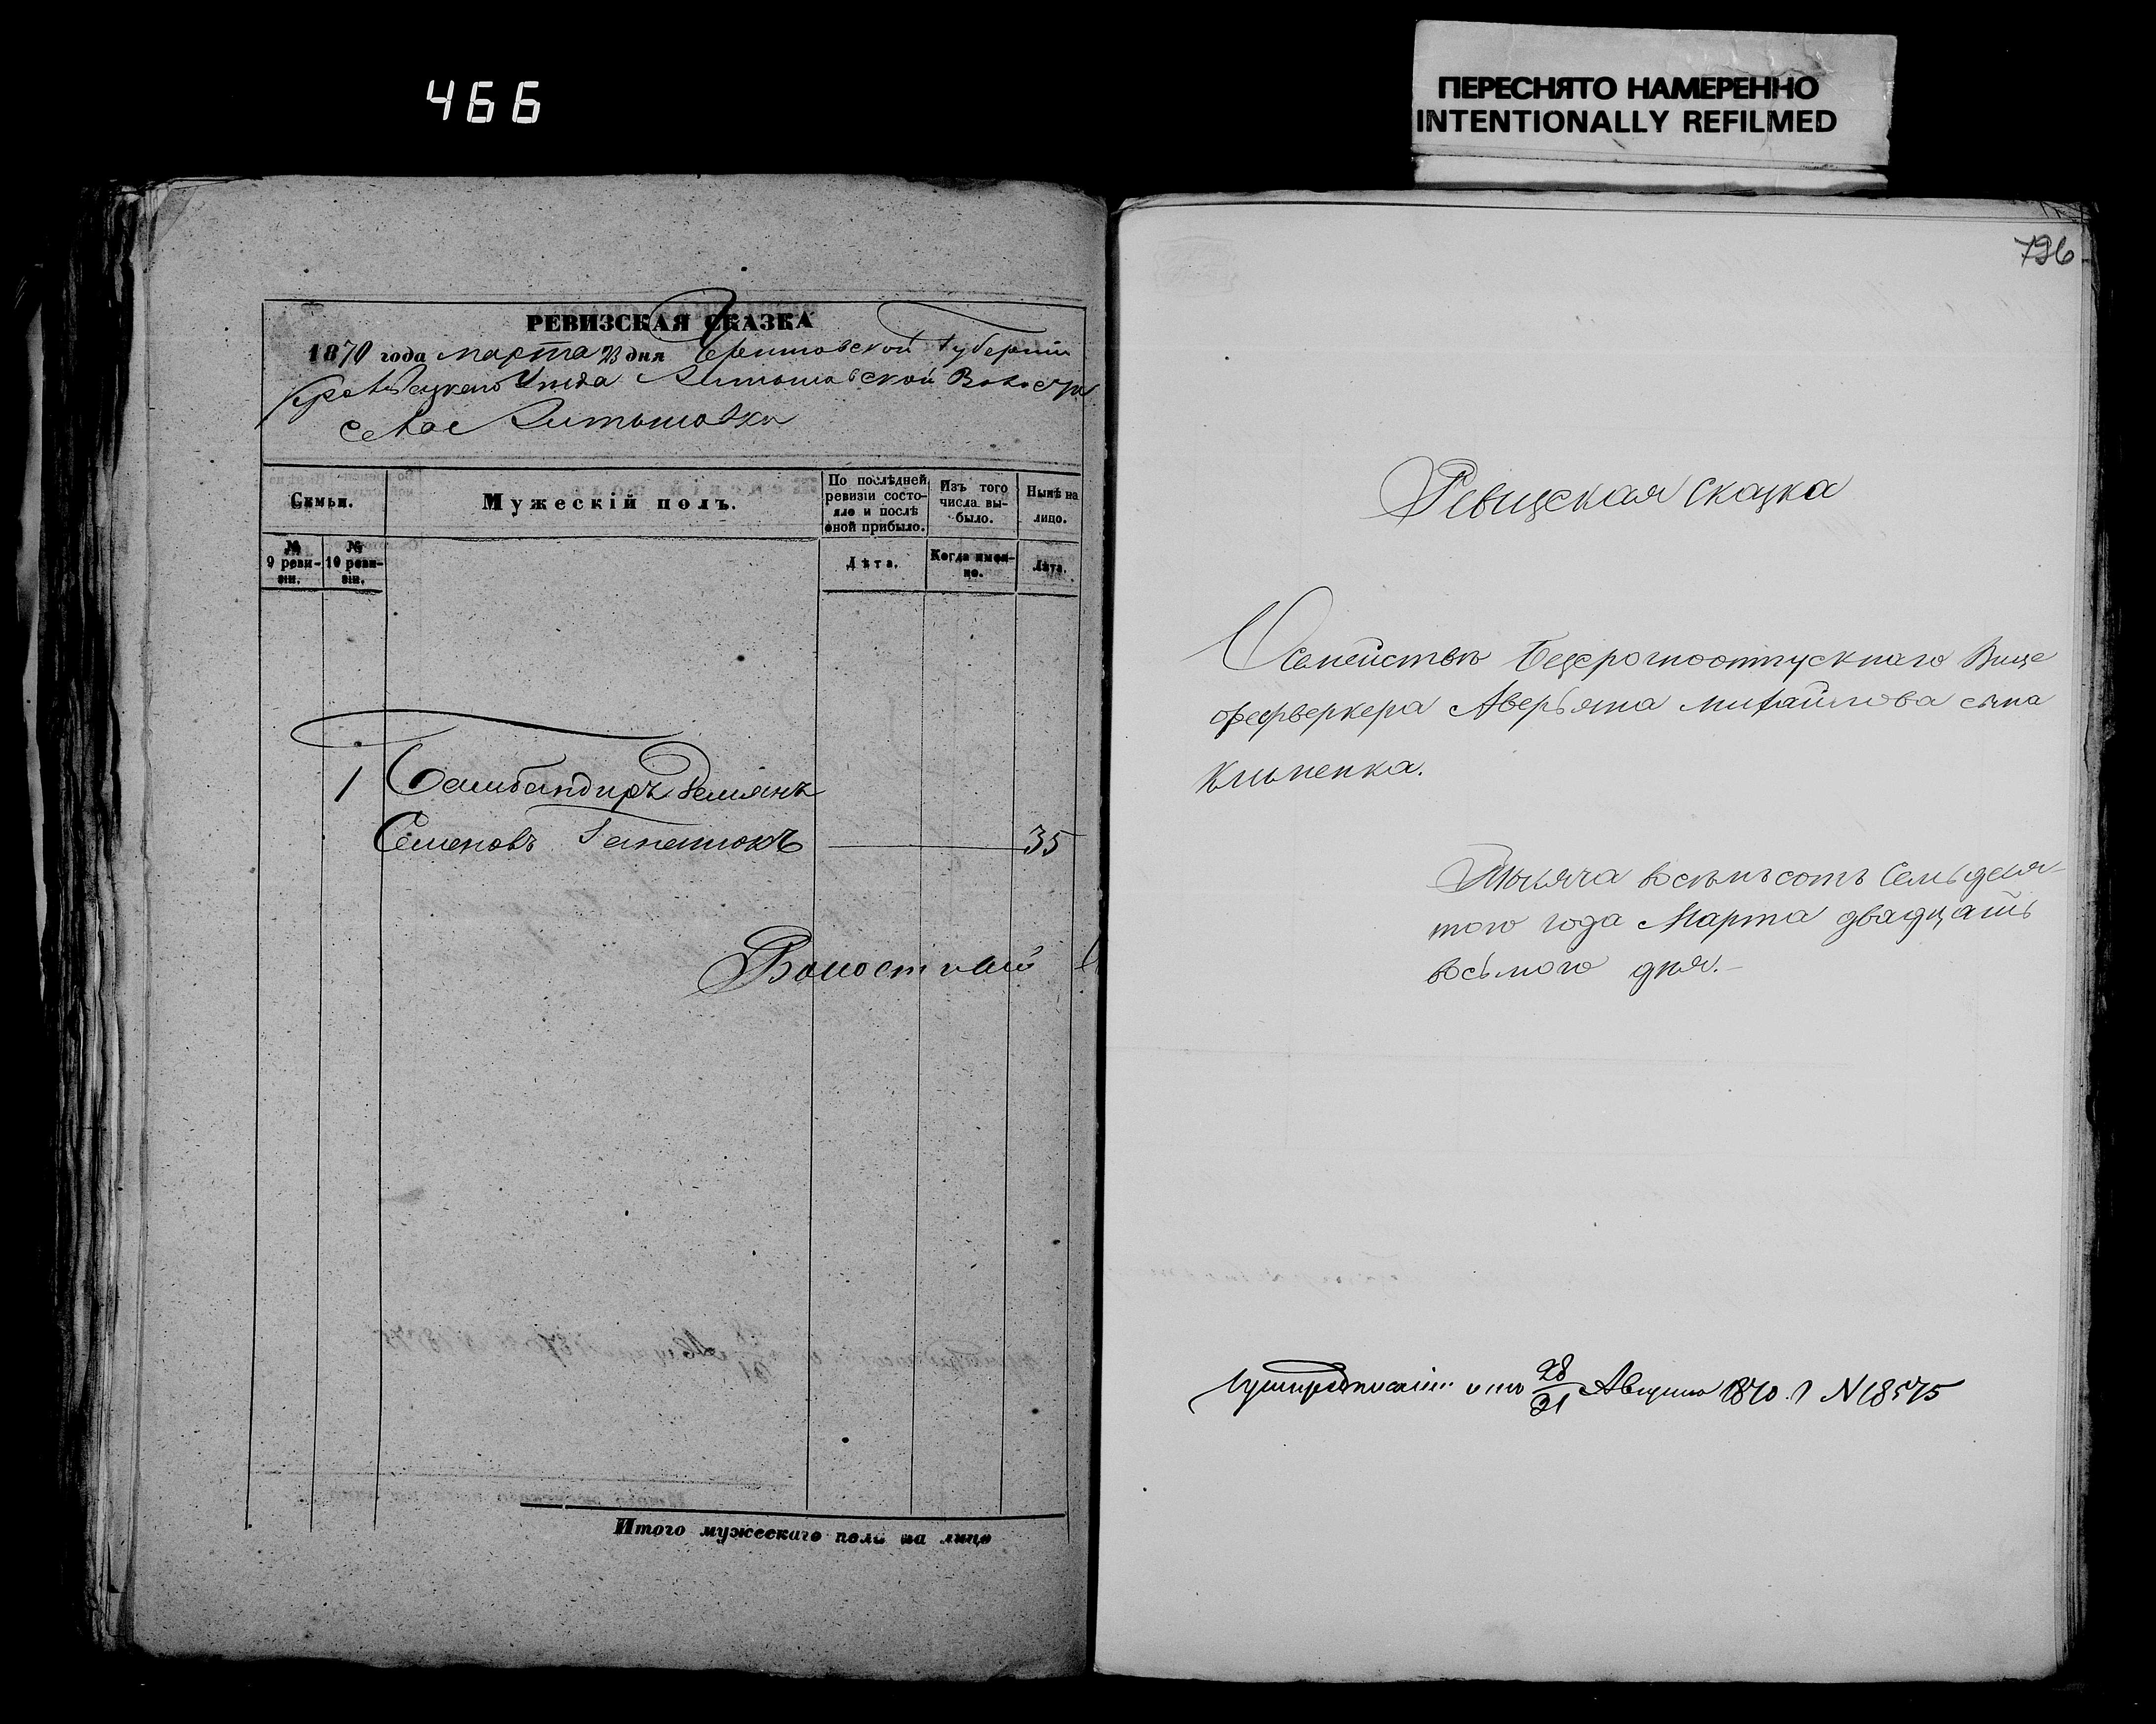 466
ПЕРЕСНЯТО НАМЕРЕННО
INTENTIONALLY REFILMED
РЕВИЗСКАЯ СКАЗКА
1870 года марта 23 дня Черниговской Губерніи
Кролевецкаго Уезда Алтыновской Волости
село Алтыновка
Семьи.
Мужескій полъ.
По послѣдней ревизіи состояло и послѣ оной прибыло.
Изъ того числа выбыло.
Нынѣ на лицо.
№ 9 ревизіи.
№ 10 ревизіи.
Лѣта.
Когда именно.
Лѣта.
1 Бомбандиръ Демянъ
Семеновъ 35
Волостной
Итого мужескаго пола на лицо
796
Ревизская сказка
О семействѣ безсрочноотпускнаго Вице
фейерверкера Аверьяна Михайлова сына
Клименка.
Тысяча восемьсотъ семьдеся-
того года Марта двадцать
восьмого дня.-
от 28/31 Августа 1870 г N 18575